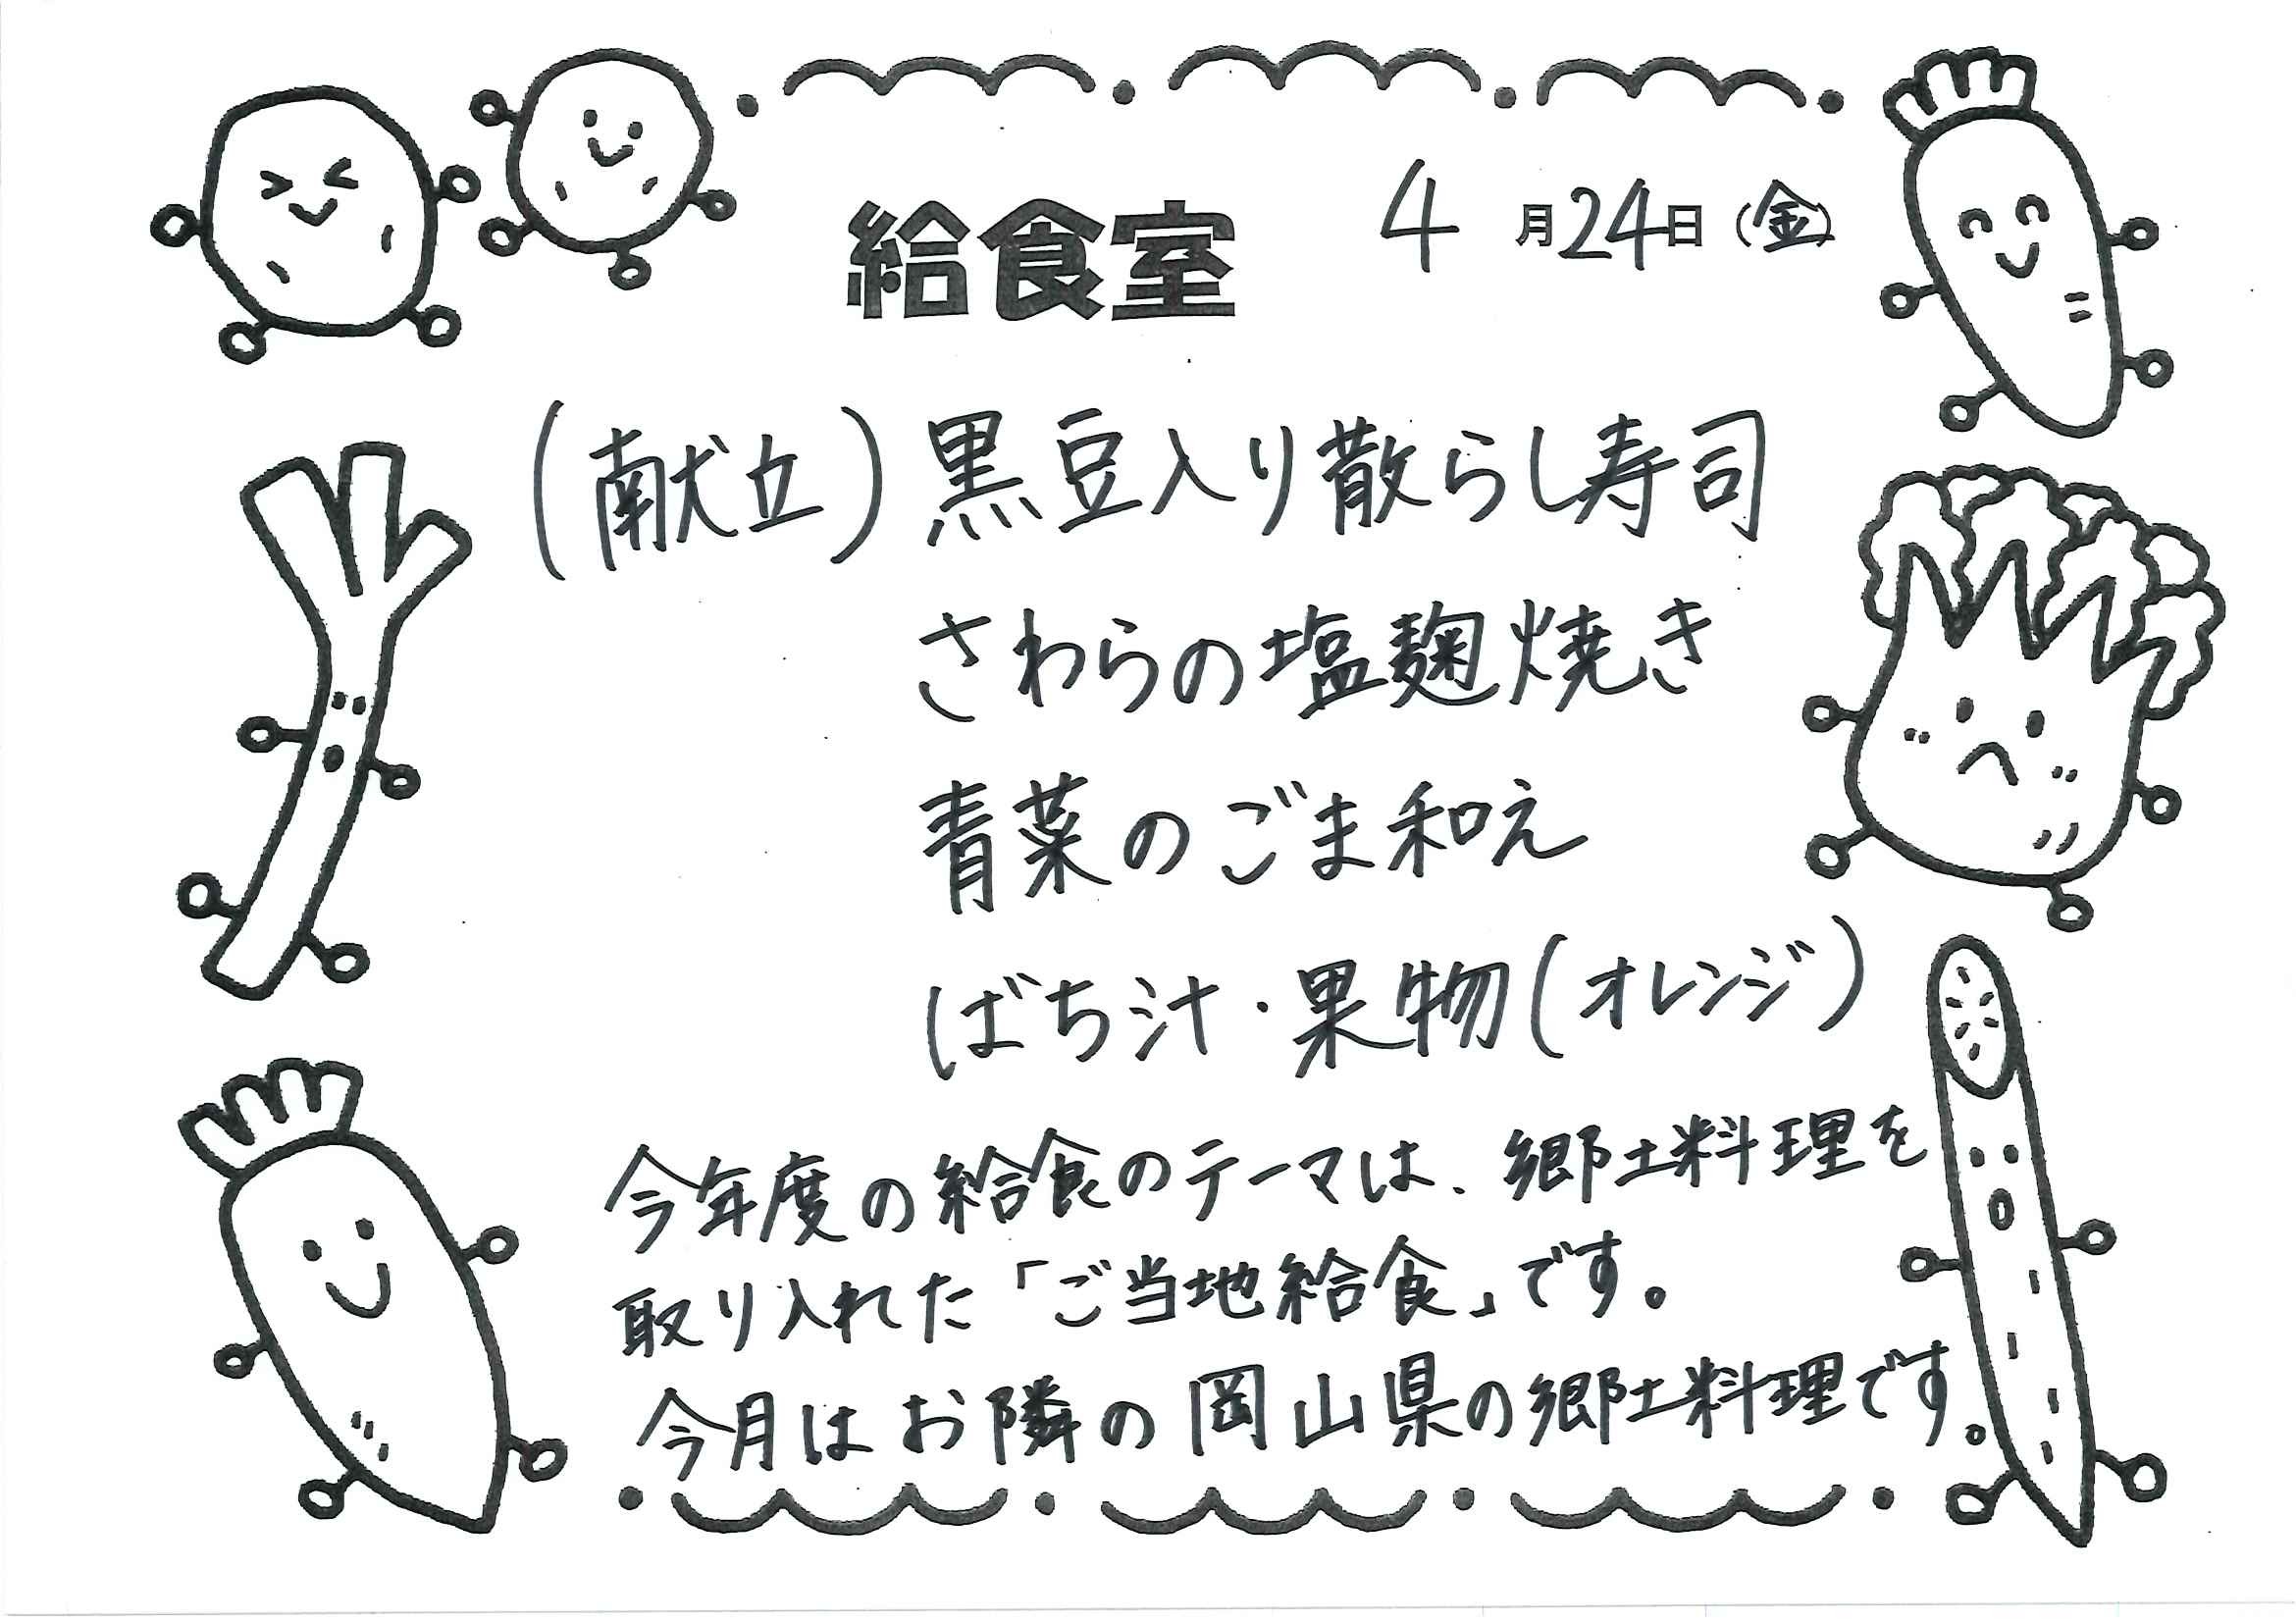 給食室
4月24日(金)
(献立)黒豆入り散らし寿司
さわらの塩麹焼き
青菜のごま和え
ばち汁・果物(オレンジ)
今年度の給食のテーマは、郷土料理を
取り入れた「ご当地給食」です。
今月はお隣の岡山県の郷土料理です。